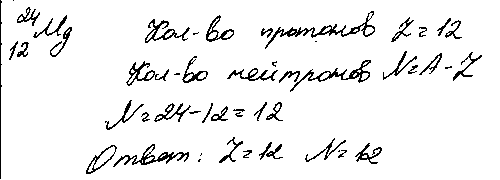 ²⁴₁₂Mg Кол-во протонов Z=12
Кол-во нейтронов N=A-Z
N=24-12=12
Ответ: Z=12 N=12